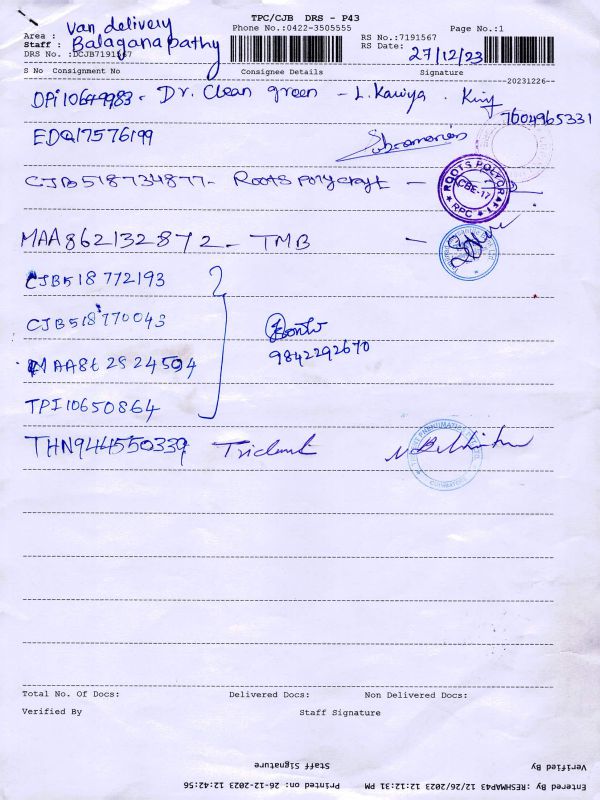 TPC/CJB DRS - P43
Area : Van delivery Phone No.:0422-3505555 Page No.:1
Staff : Balaganapathy RS No.:7191567
DRS No. :DCJB7191567 RS Date: 27/12/23
S No Consignment No Consignee Details Signature
20231226
OPI10649983 - Dr. Clean green - L. Kaviya.
7604965331
EDQ17576199 Subramanian
CJB518734877 - Roots polycraft -
ROOTS POLYCRAFT
CBE-17
RPC
MAA862132872 - TMB -
CJB518772193
CJB518770043
MAA862824504
9842292670
TPI10650864
THN944550339 Trident
COIMBATORE
Total No. Of Docs: Delivered Docs: Non Delivered Docs:
Verified By Staff Signature
Verified By Staff Signature
Entered By :RESHMAP43 12/26/2023 12:12:31 PM Printed on: 26-12-2023 12:42:56